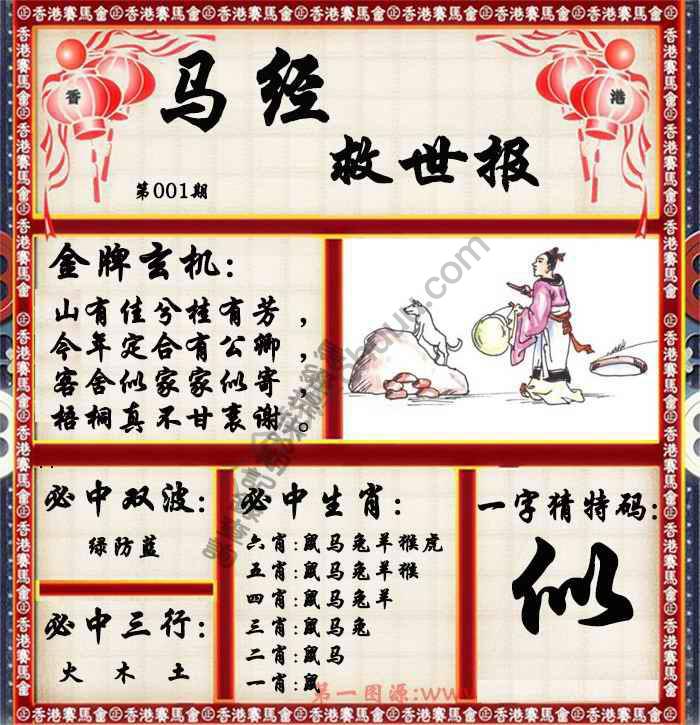 香港賽馬會
香
港
马经
救世报
第001期
金牌玄机:
山有佳兮桂有芳,
今年定合有公卿,
客舍似家家似寄,
梧桐真不甘衰谢。
必中双波:
绿防蓝
必中三行:
火 木 土
必中生肖:
六肖:鼠马兔羊猴虎
五肖:鼠马兔羊猴
四肖:鼠马兔羊
三肖:鼠马兔
二肖:鼠马
一肖:鼠
一字猜特码:
似
第一图源:www